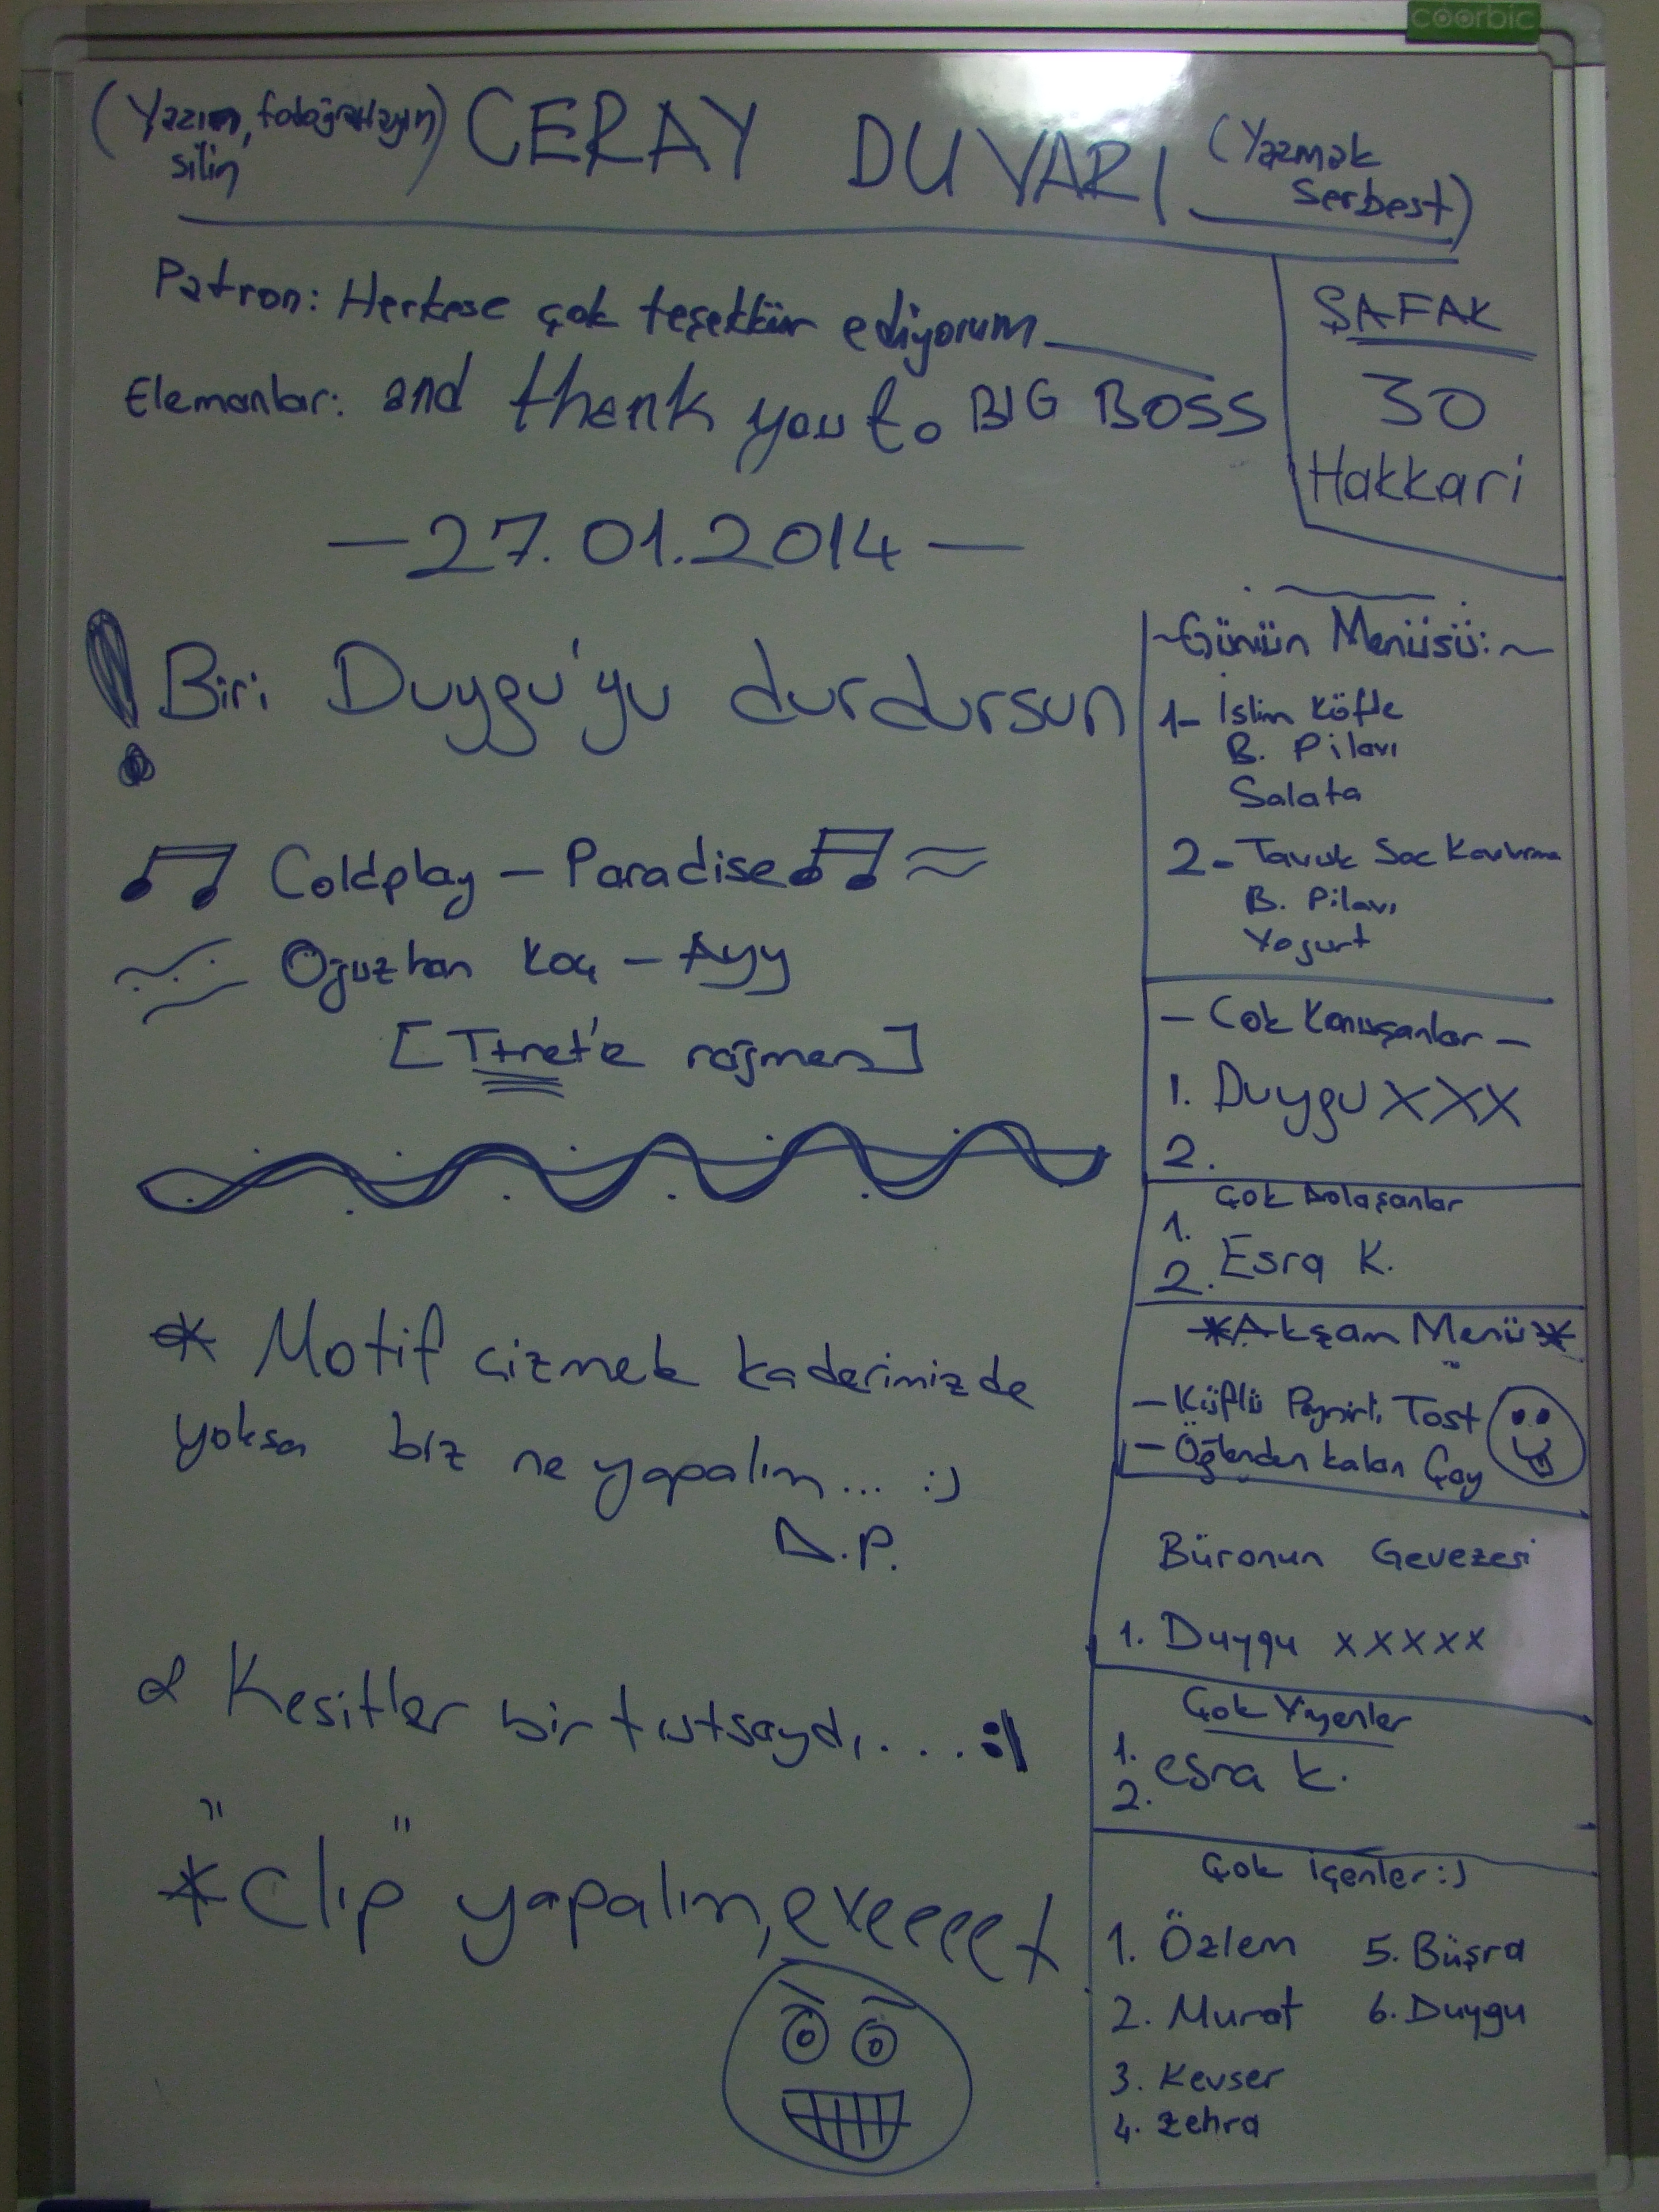 coorbic
(Yazın, fotoğraflayın, silin) CERAY DUVARI (Yazmak Serbest)
Patron: Herkese çok teşekkür ediyorum
Elemanlar: and thenk you to BIG BOSS
ŞAFAK
30
Hakkari
— 27.01.2014 —
! Biri Duygu'yu durdursun
Coldplay – Paradise
Oğuzhan Koç – Ayy
[ rağmen]
* Motif çizmek kaderimizde
yoksa biz ne yapalım... :)
D.P.
Kesitler bir tutsaydı.... :|
* "Clip" yapalım, eveeeet
~Günün Menüsü:~
1- İslim Köfte
B. Pilavı
Salata
2- Tavuk Sac Kavurma
B. Pilavı
Yoğurt
– Çok Konuşanlar –
1. Duygu XXX
2.
Çok Dolaşanlar
1.
2. Esra K.
*Akşam Menü*
– Küflü Peynirli Tost
– Öğlenden kalan Çay
Büronun Gevezesi
1. Duygu xxxxx
Çok Yiyenler
1. esra k.
2.
Çok içenler :)
1. Özlem 5. Büşra
2. Murat 6. Duygu
3. Kevser
4. Zehra